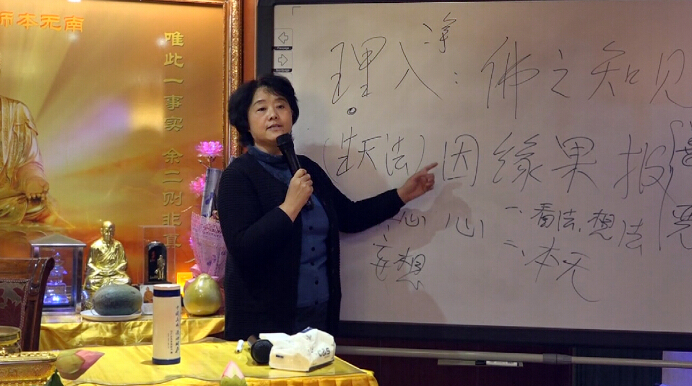 南无本师
唯此一事实
余二则非真
净
理入：佛之知见
(生天法)因缘果报
心 心 一、看法、想法
妄想 二、本无
恶